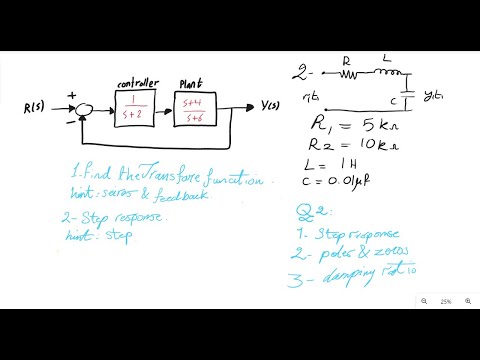 controller
Plant
R(s)
+
-
1
s+2
s+4
s+6
Y(s)
1-Find the Transfare function.
hint: seires & feedback.
2- Step response.
hint: step
2-
R
L
C
r(t)
y(t)
R1 = 5 kΩ
R2 = 10 kΩ
L = 1 H
C = 0.01 µF
Q2:
1- Step response
2- poles & zoros
3- damping ratio
25%